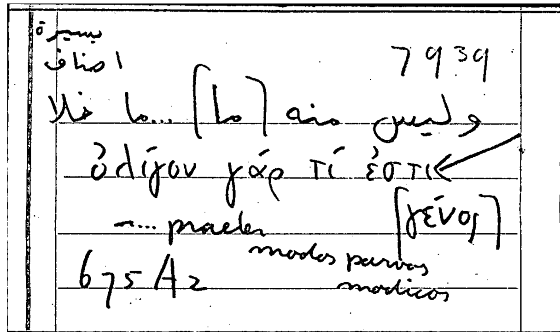 يسيرة
اصناف
7939
وليس منه [ما] ... ما خلا
ὀλίγον γάρ τί ἐστι
[γένος]
... praeter
modos parvos
modicos
675 A2